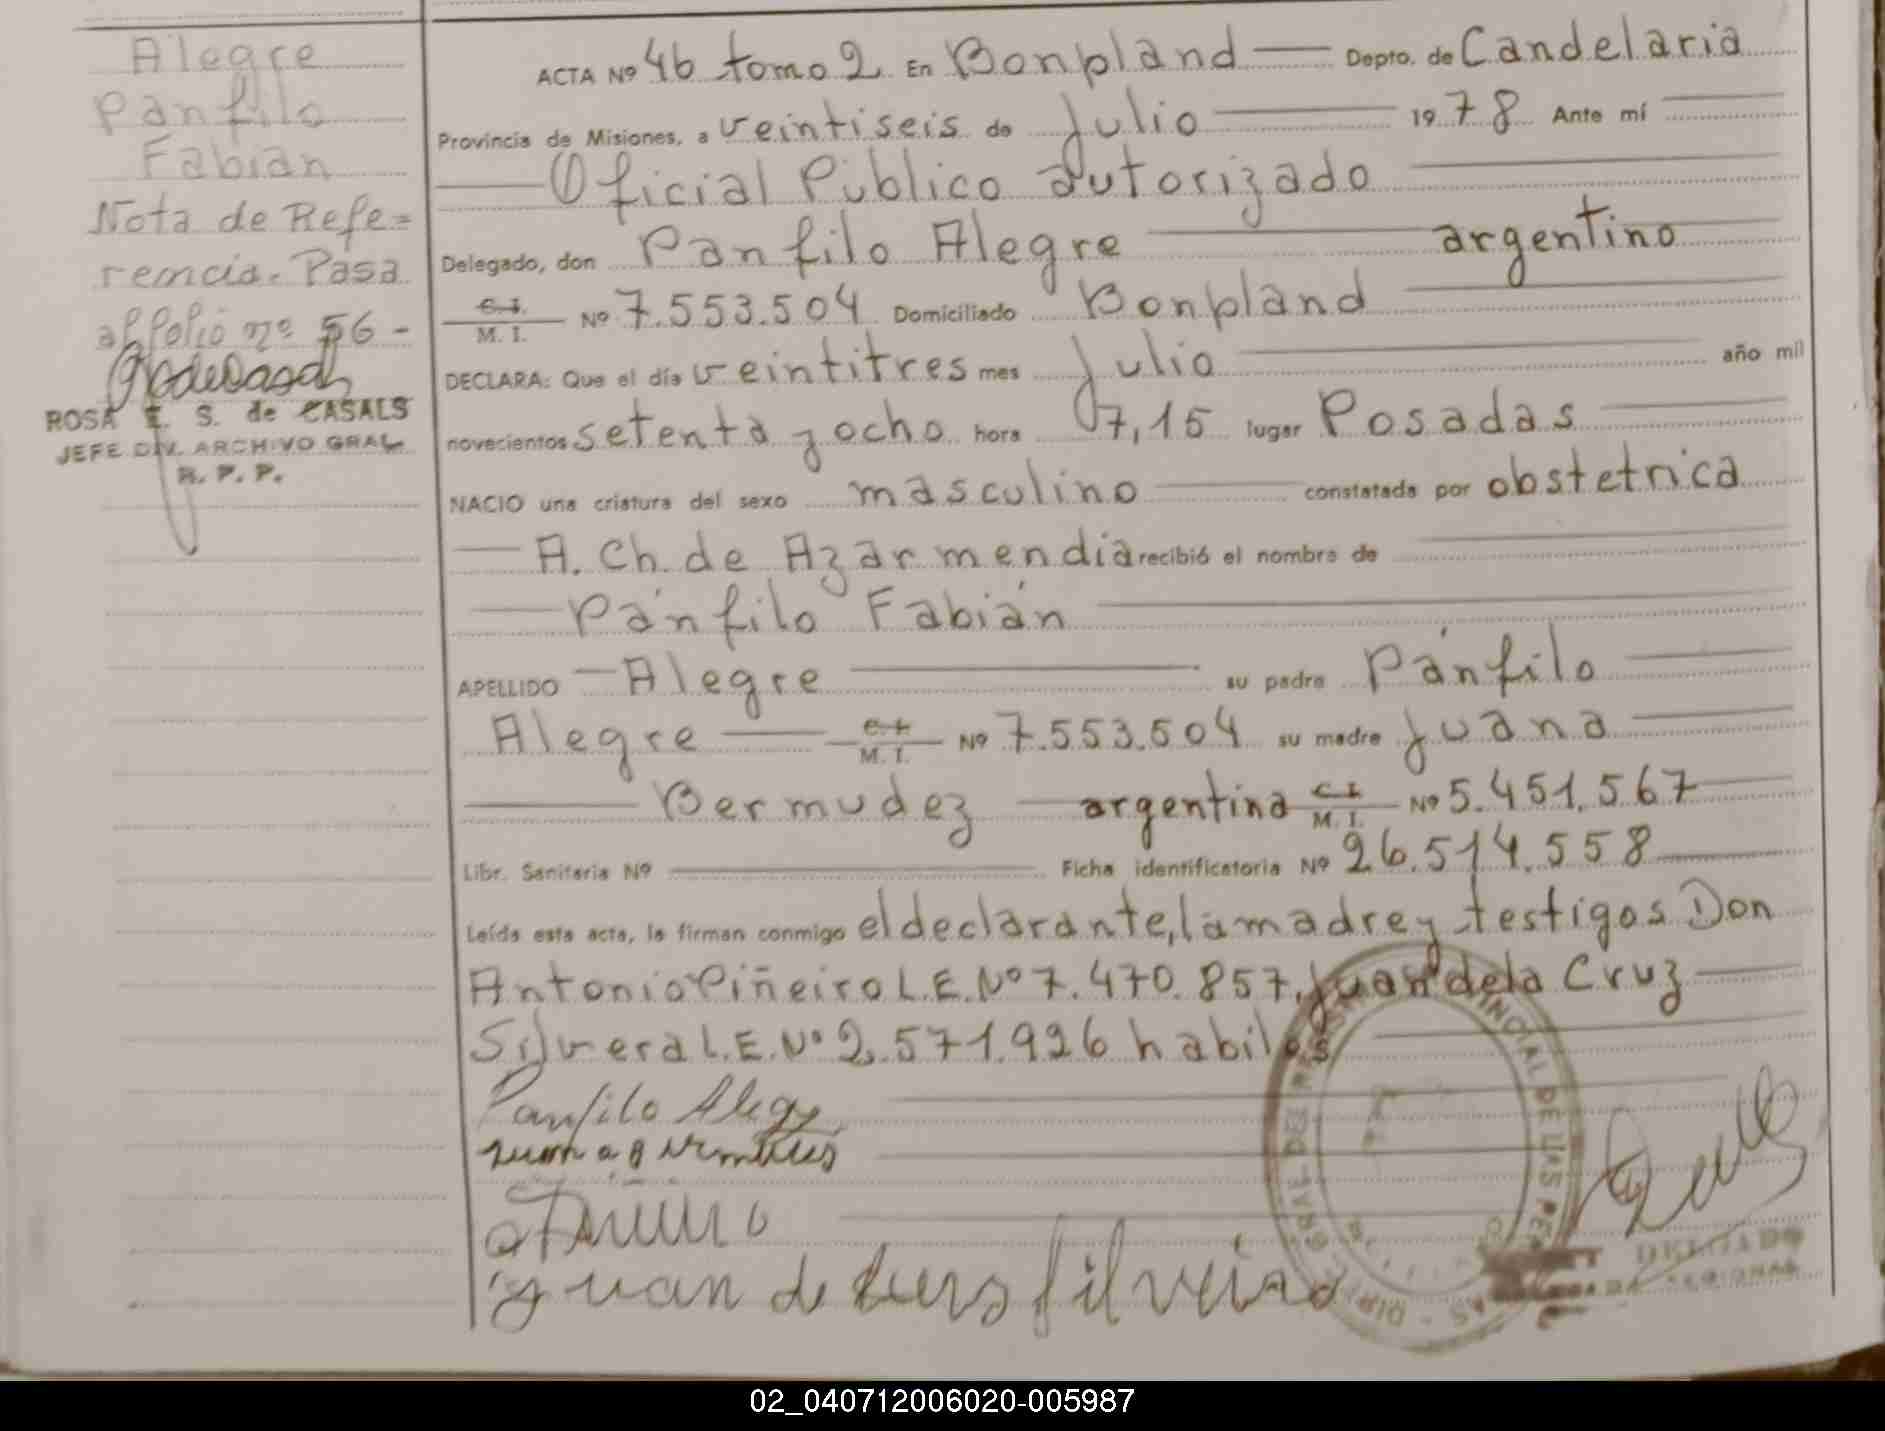 Alegre
Panfilo
Fabian
Nota de Refe=
rencia. Pasa
al folio nº 56 -
ROSA E. S. de CASALS
JEFE DIV. ARCHIVO GRAL.
R. P. P.
ACTA Nº 46 tomo 2 En Bonpland Depto. de Candelaria
Provincia de Misiones, a veintiseis de Julio 1978 Ante mí
Oficial Público autorizado
Delegado, don Panfilo Alegre argentino
C.I. M. I. Nº 7.553.504 Domiciliado Bonpland
DECLARA: Que el día veintitres mes Julio año mil
novecientos setenta y ocho hora 07,15 lugar Posadas
NACIO una criatura del sexo masculino constatada por obstetrica
A. Ch. de Azarmendia recibió el nombre de
Pánfilo Fabián
APELLIDO Alegre su padre Pánfilo
Alegre C.I. M. I. Nº 7.553.504 su madre Juana
Bermudez argentina C.I. M. I. Nº 5.451.567
Libr. Sanitaria Nº Ficha identificatoria Nº 26.514.558
Leída esta acta, la firman conmigo el declarante, la madre y testigos Don
Antonio Piñeiro L.E. Nº 7.470.857, Juan de la Cruz
Silvera L.E. Nº 2.571.926 habiles
Panfilo Alegre
Juan de Silveira
DELEGADO
02_040712006020-005987